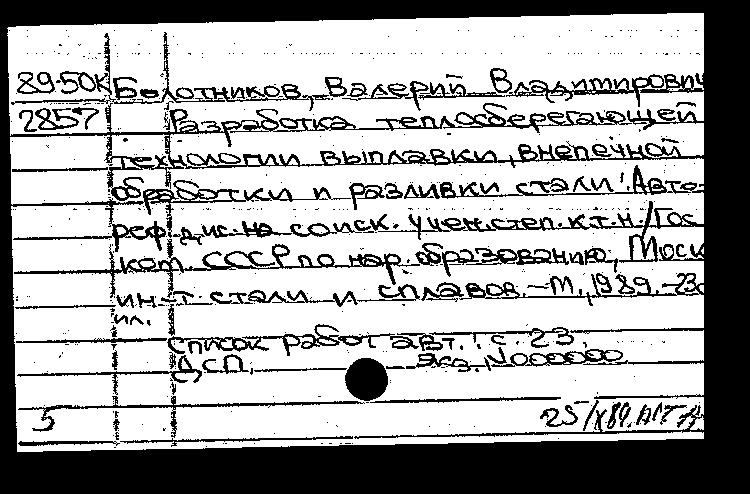 89-50К Болотников, Валерий Владимирович
2857 Разработка теплосберегающей
технологии выплавки, внепечной
обработки и разливки стали: Авто-
реф. дис. на соиск. учен. степ. к.т.н. / Гос
ком. СССР по нар. образованию, Моск
ин-т стали и сплавов. - М., 1989. - 23с
ил.
Список работ авт.: с. 23.
ДСП. Экз. N000000
5 25/X89.